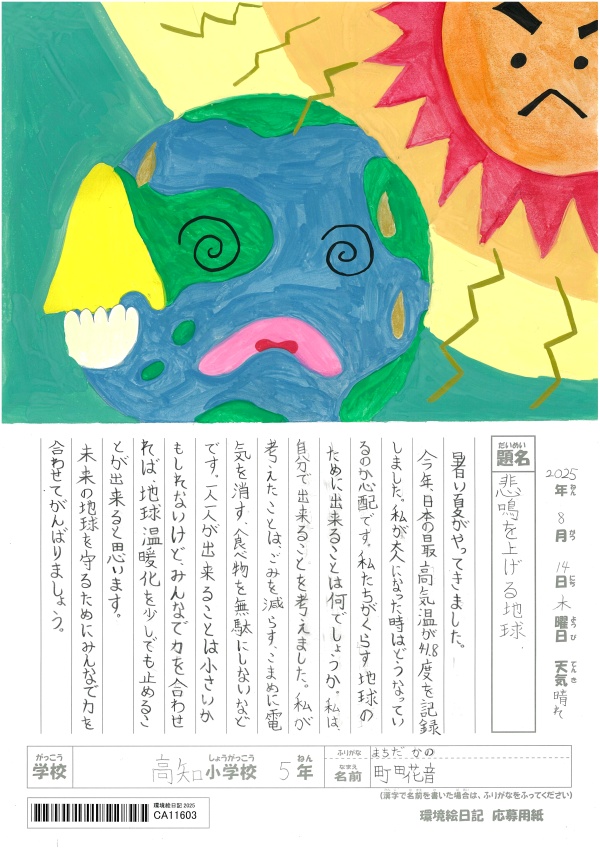 2025年ねん 8月がつ 14日にち 木曜日ようび 天気てんき 晴れ
題名だいめい 悲鳴を上げる地球.
暑い夏がやってきました。
今年、日本の最高気温が41.8度を記録
しました。私が大人になった時はどうなってい
るのか心配です。私たちがくらす地球の
ために出来ることは何でしょうか。私は、
自分で出来ることを考えました。私が
考えたことは、ごみを減らす、こまめに電
気を消す、食べ物を無駄にしないなど
です。一人一人が出来ることは小さいか
もしれないけど、みんなで力を合わせ
れば、地球温暖化を少しでも止めるこ
とが出来ると思います。
未来の地球を守るためにみんなで力を
合わせてがんばりましょう。
がっこう 学校 高知 しょうがっこう 小学校 5 ねん 年
ふりがな まちだ かの
なまえ 名前 町田花音
(漢字で名前を書いた場合は、ふりがなをふってください)
環境絵日記 2025
CA11603
環境絵日記 応募用紙